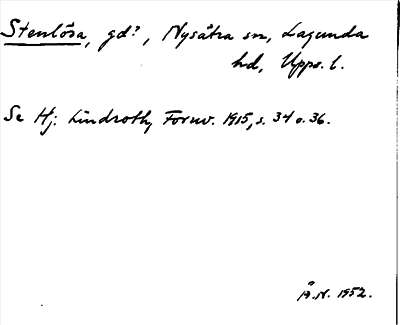 Stenlösa, gd?, Nysätra sn, Lagunda
hd, Upps. l.
Se Hj. Lindroth, Fornv. 1915, s. 34 o. 36.
Å.N. 1952.